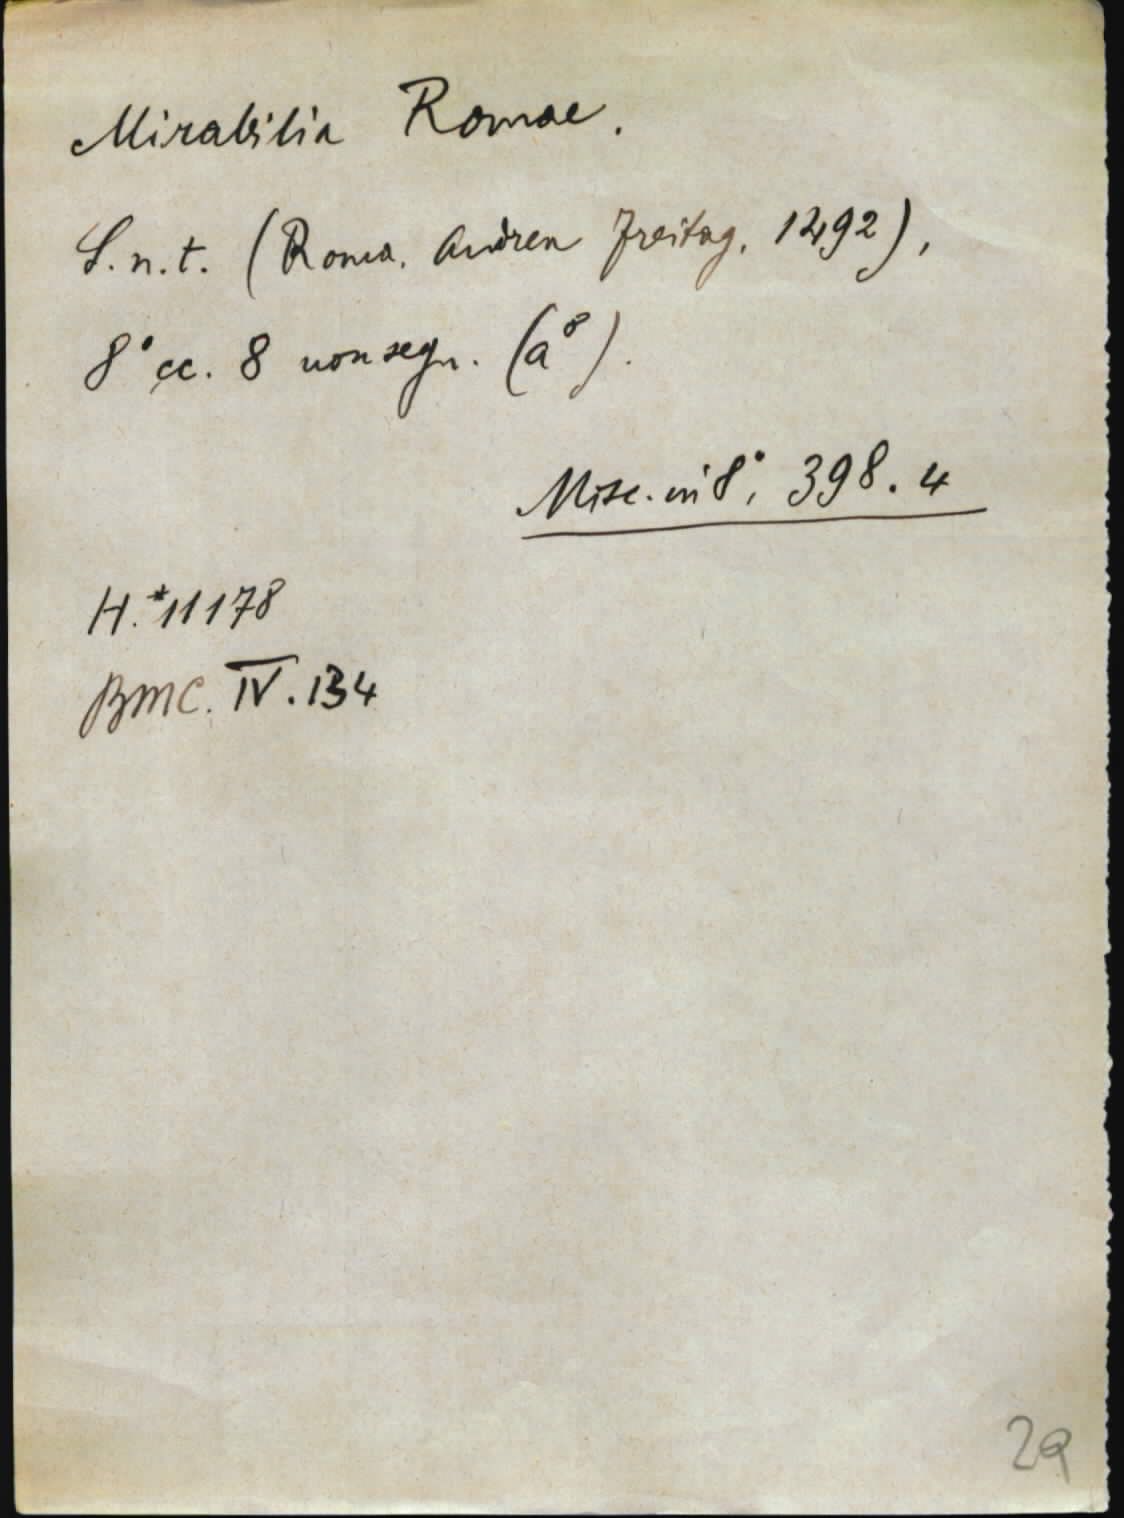 Mirabilia Romae.
S.n.t. (Roma, Andrea Freitag, 1492),
8° cc. 8 non segn. (a⁸).
Misc. in 8°, 398.4
H.*11178
BMC. IV.134
29